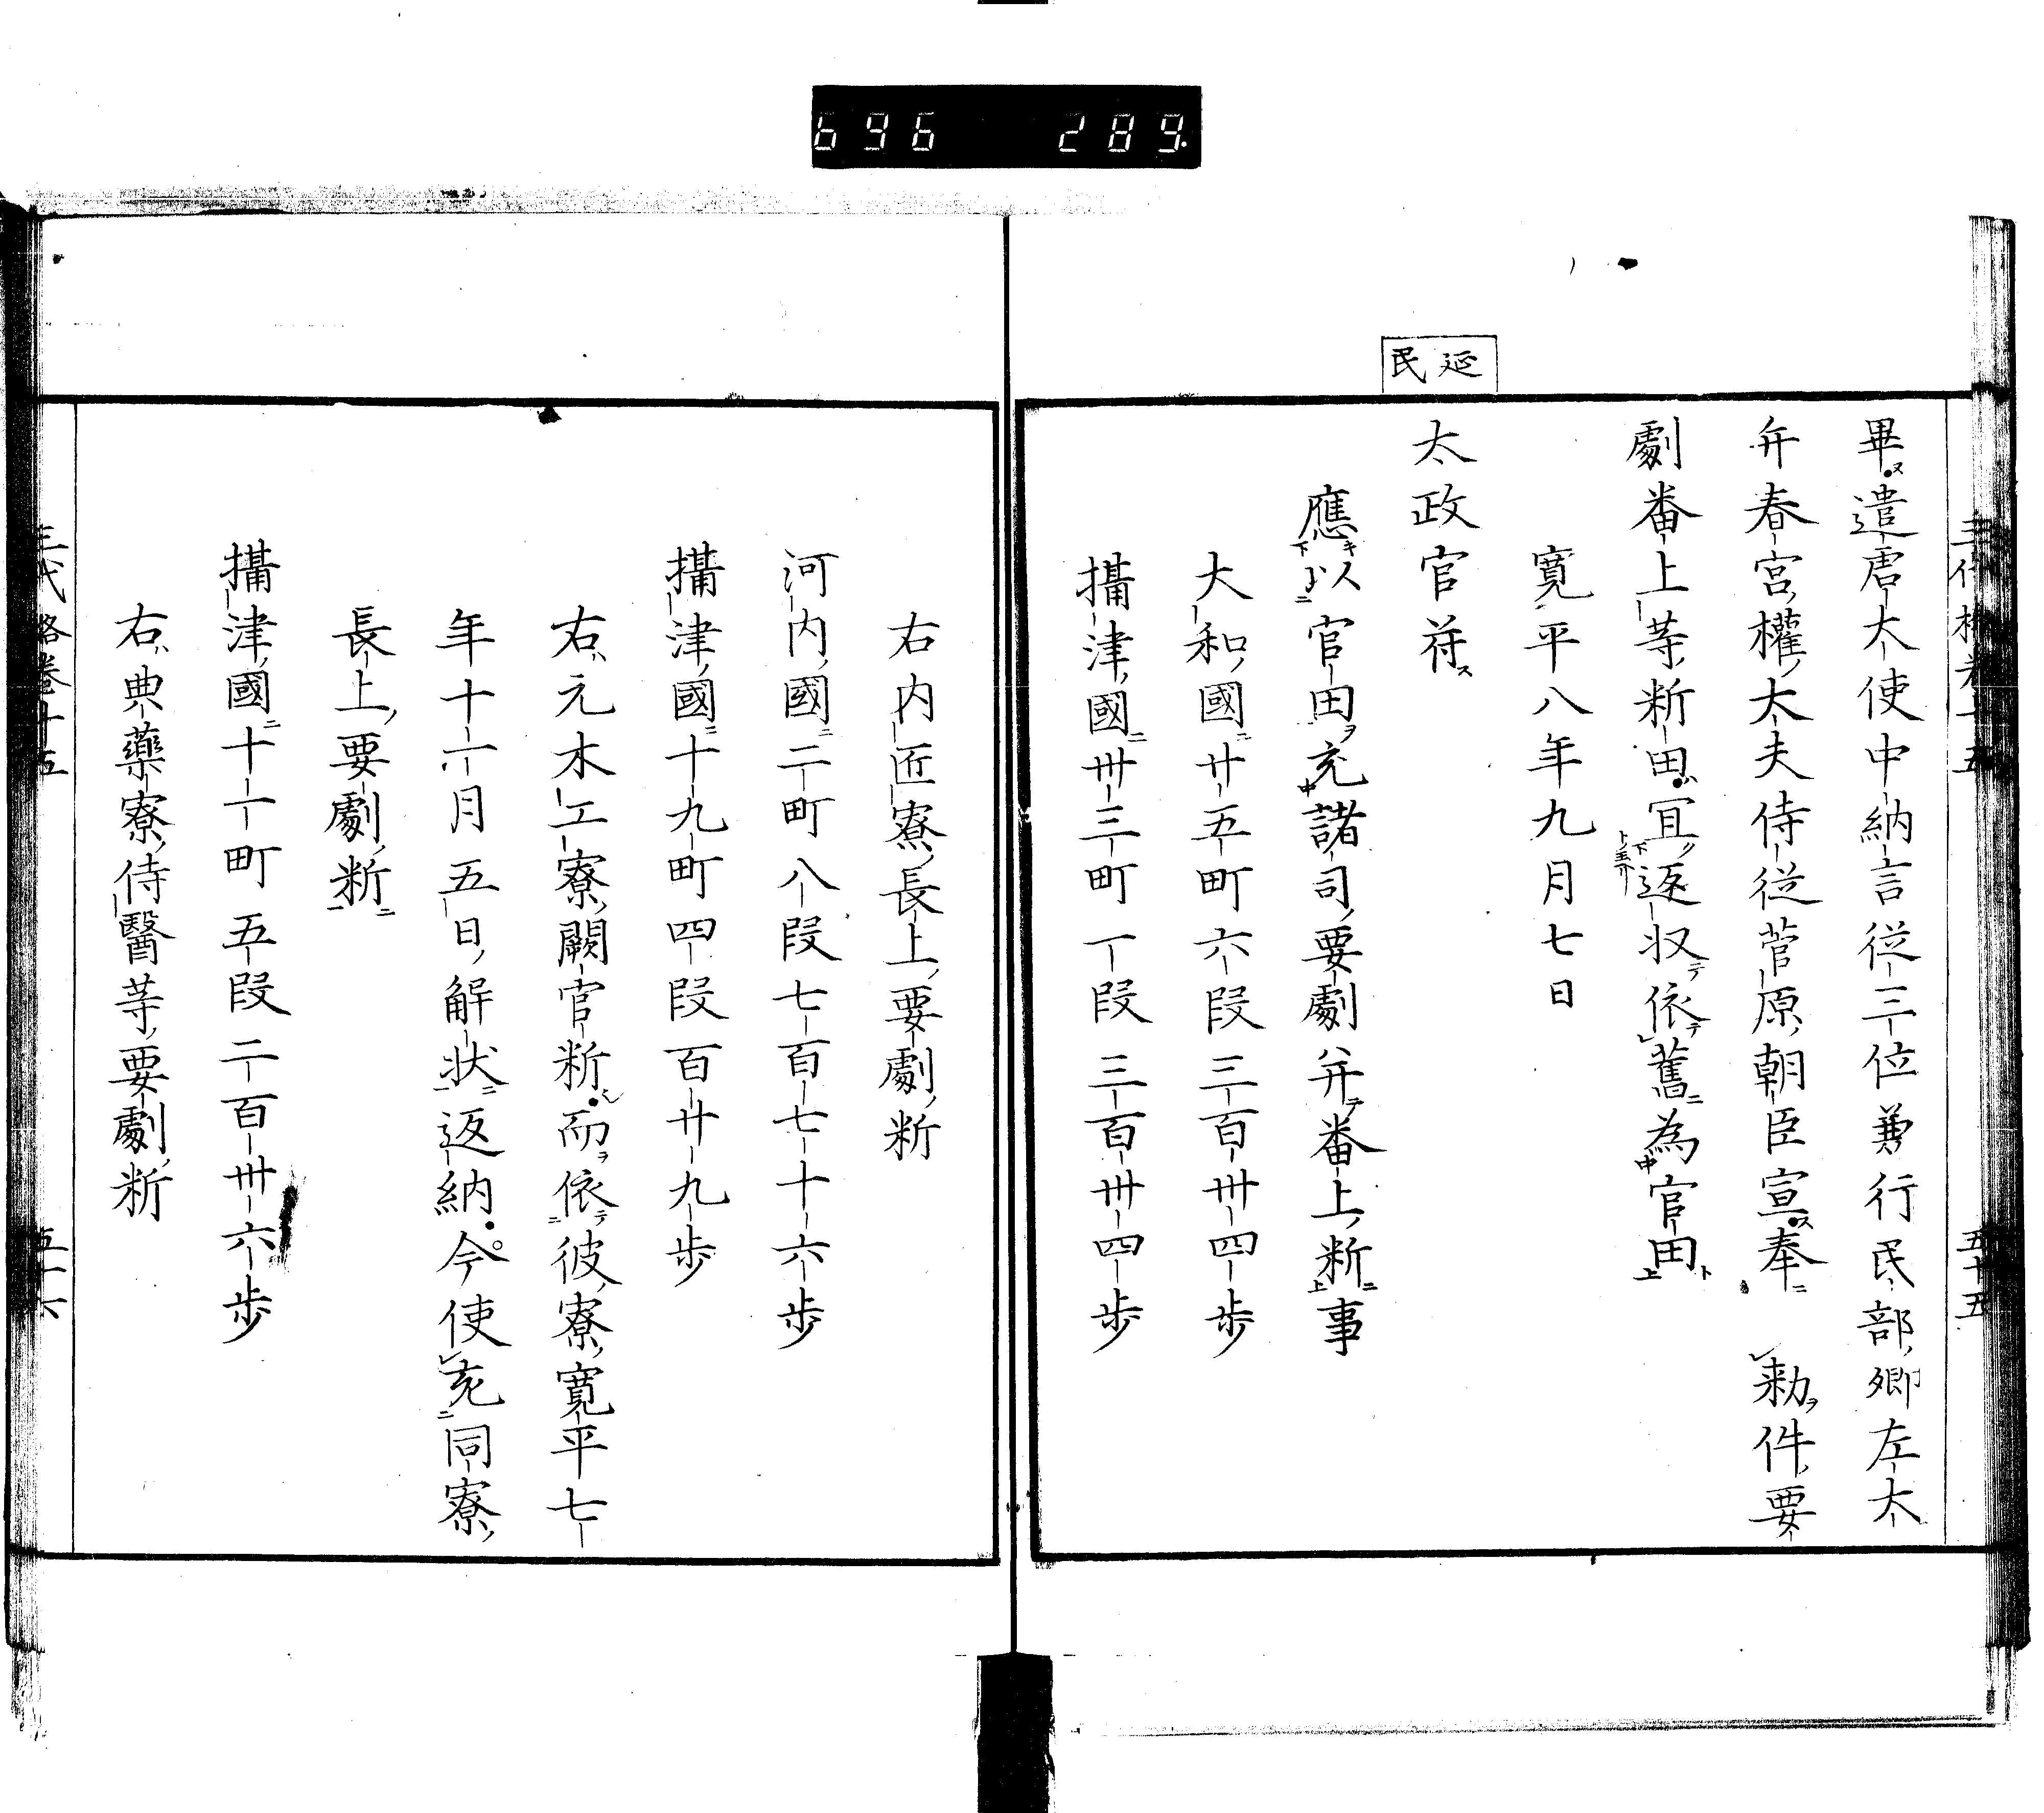 696 289
延民
畢遣唐大使中納言從三位兼行民部卿左大
弁春宮權大夫侍從菅原朝臣宣奉　勅件要
劇番上等斷田宜返收依舊為官田
寛平八年九月七日
太政官符
應以官田充諸司要劇幷番上斷事
大和國廿五町六段三百卌四步
攝津國卌三町一段三百卌四步
右內匠寮長上要劇斷
河內國二町八段七百七十六步
攝津國十九町四段百廿九步
右元木工寮闕官斷而依彼寮寛平七
年十一月五日解狀返納今使充同寮
長上要劇斷
攝津國十一町五段二百卌六步
右典藥寮侍醫等要劇斷
三代格卷十五
五十五
三代格卷十五
五十六